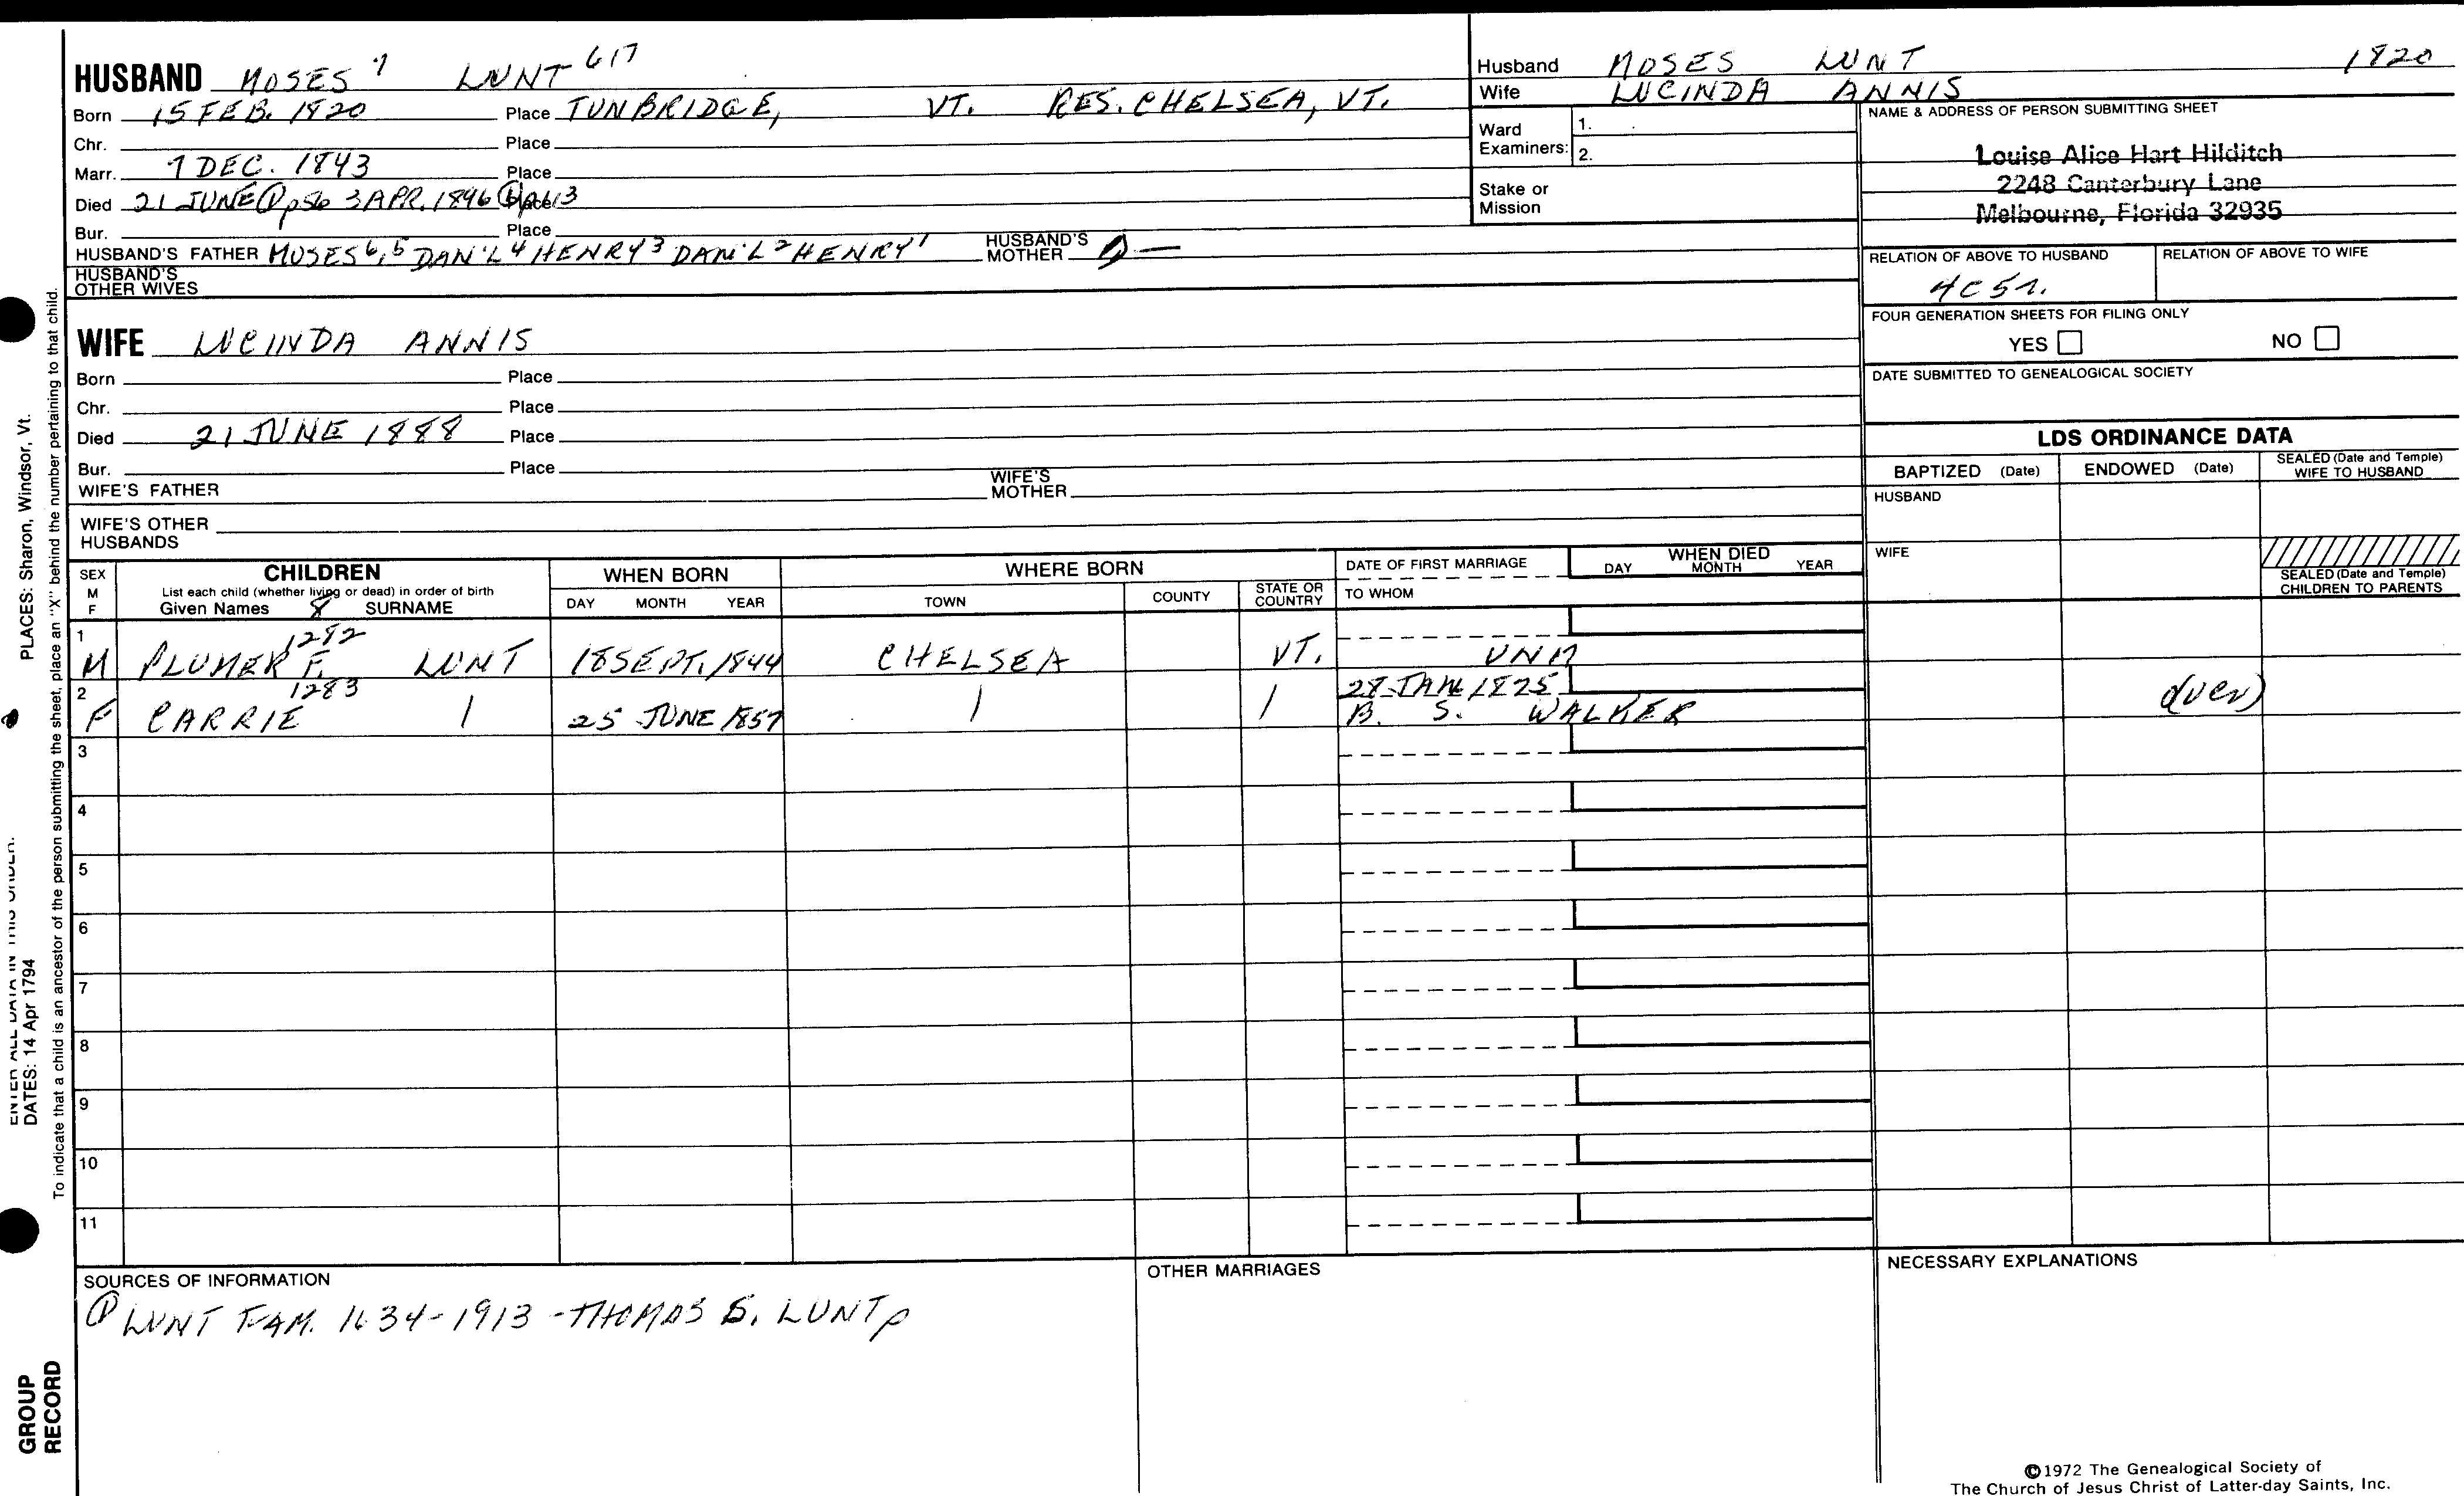 HUSBAND MOSES 7 LUNT 617
Born 15 FEB. 1820 Place TUNBRIDGE, VT. RES. CHELSEA, VT.
Chr. Place
Marr. 7 DEC. 1843 Place
Died 21 JUNE ① p56 3 APR. 1896 Place
Bur. Place
HUSBAND'S FATHER MOSES 6,5 DAN'L 4 HENRY 3 DAN'L 2 HENRY 1 HUSBAND'S MOTHER —
HUSBAND'S OTHER WIVES
WIFE LUCINDA ANNIS
Born Place
Chr. Place
Died 21 JUNE 1888 Place
Bur. Place
WIFE'S FATHER WIFE'S MOTHER
WIFE'S OTHER HUSBANDS
Husband MOSES LUNT 1820
Wife LUCINDA ANNIS
Ward Examiners: 1.
2.
Stake or Mission
NAME & ADDRESS OF PERSON SUBMITTING SHEET
Louise Alice Hart Hilditch
2248 Canterbury Lane
Melbourne, Florida 32935
RELATION OF ABOVE TO HUSBAND RELATION OF ABOVE TO WIFE
FOUR GENERATION SHEETS FOR FILING ONLY
YES NO
DATE SUBMITTED TO GENEALOGICAL SOCIETY
LDS ORDINANCE DATA
BAPTIZED (Date) ENDOWED (Date) SEALED (Date and Temple) WIFE TO HUSBAND
HUSBAND
WIFE
SEALED (Date and Temple) CHILDREN TO PARENTS
SEX M F
CHILDREN
List each child (whether living or dead) in order of birth
Given Names 8 SURNAME
WHEN BORN
DAY MONTH YEAR
WHERE BORN
TOWN COUNTY STATE OR COUNTRY
DATE OF FIRST MARRIAGE
TO WHOM
WHEN DIED
DAY MONTH YEAR
1 1282
M PLUMER F. LUNT 18 SEPT. 1844 CHELSEA VT. UNM
2 1283 28 JAN 1875
F CARRIE 25 JUNE 1857 B. S. WALKER (over)
3
4
5
6
7
8
9
10
11
SOURCES OF INFORMATION
① LUNT FAM. 1634-1913 - THOMAS S. LUNT p
OTHER MARRIAGES
NECESSARY EXPLANATIONS
©1972 The Genealogical Society of
The Church of Jesus Christ of Latter-day Saints, Inc.
PLACES: Sharon, Windsor, Vt.
ENTER ALL DATA IN THIS ORDER:
DATES: 14 Apr 1794
To indicate that a child is an ancestor of the person submitting the sheet, place an "X" behind the number pertaining to that child.
GROUP
RECORD